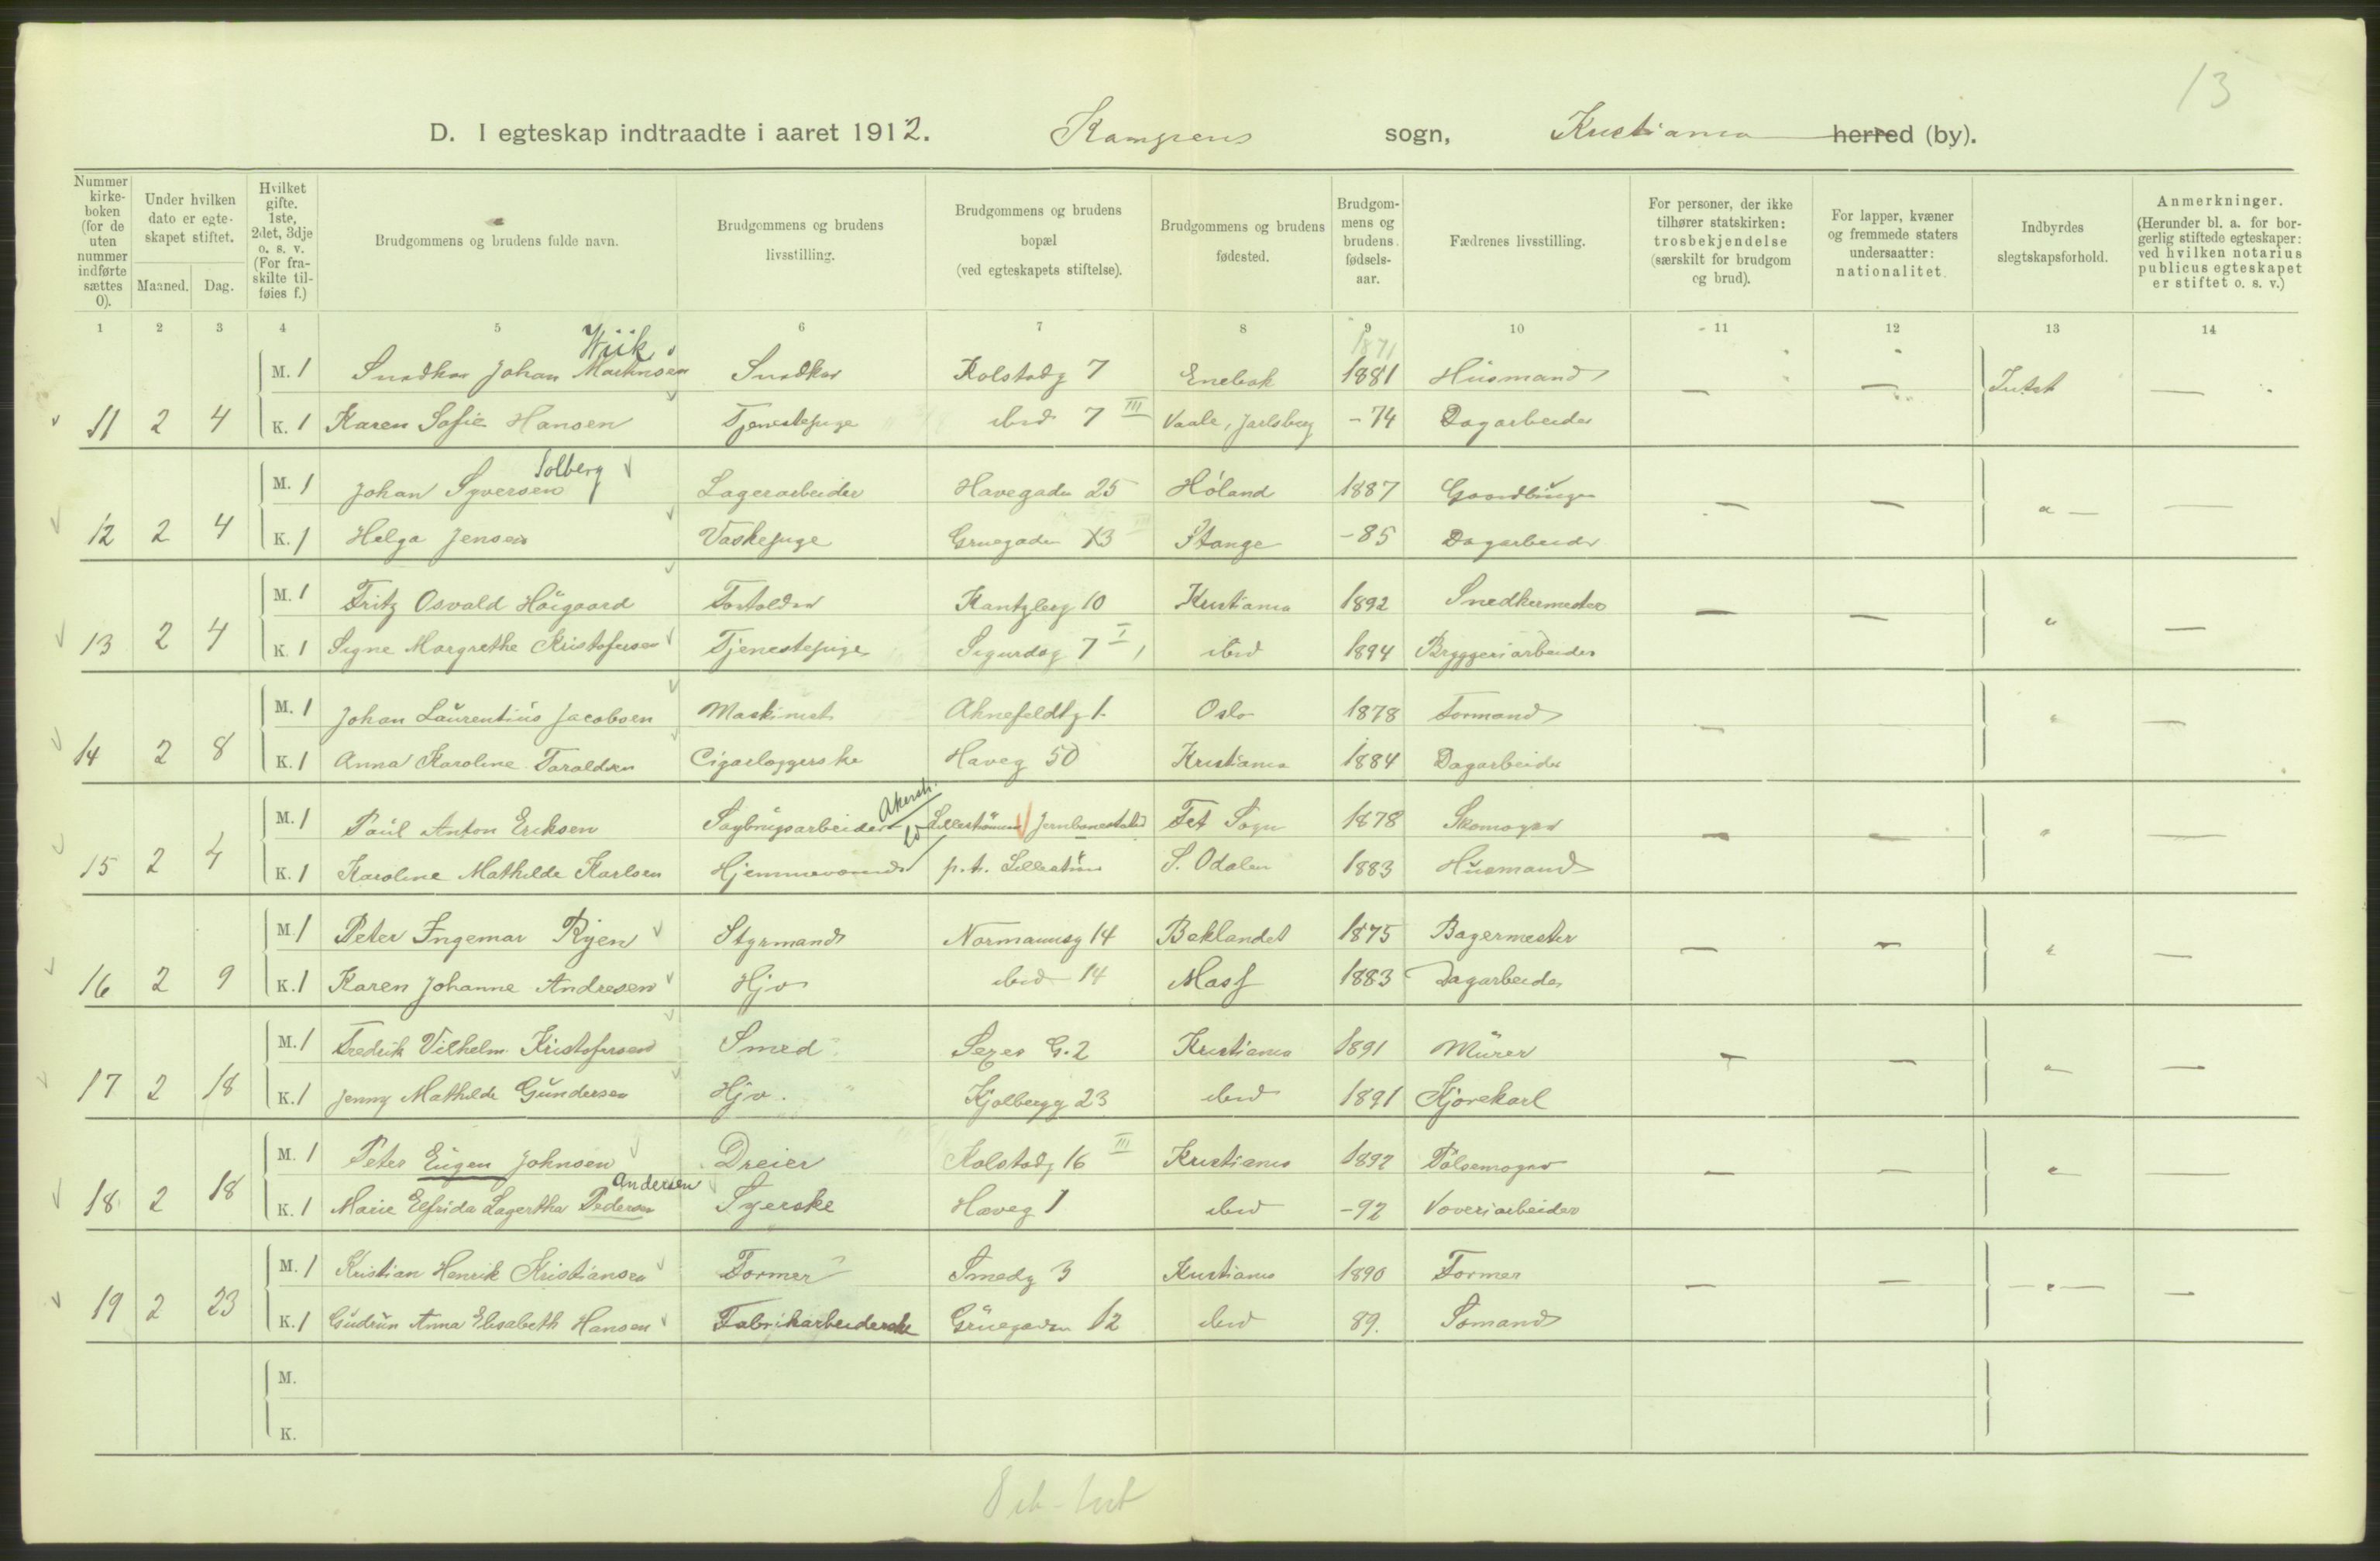 13
D. I egteskap indtraadte i aaret 1912. Kampens sogn, Kristiania herred (by).
Nummer kirke-boken (for de uten nummer indførte sættes 0).
Under hvilken dato er egte-skapet stiftet.
Maaned. Dag.
Hvilket gifte. 1ste, 2det, 3dje o. s. v. (For fra-skilte til-føies f.)
Brudgommens og brudens fulde navn.
Brudgommens og brudens livsstilling.
Brudgommens og brudens bopæl (ved egteskapets stiftelse).
Brudgommens og brudens fødested.
Brudgom-mens og brudens fødsels-aar.
Fædrenes livsstilling.
For personer, der ikke tilhører statskirken: trosbekjendelse (særskilt for brudgom og brud).
For lapper, kvæner og fremmede staters undersaatter: nationalitet.
Indbyrdes slegtskapsforhold.
Anmerkninger. (Herunder bl. a. for bor-gerlig stiftede egteskaper: ved hvilken notarius publicus egteskapet er stiftet o. s. v.)
1 2 3 4 5 6 7 8 9 10 11 12 13 14
Wiik 1871
M. 1 Snedker Johan Martinsen Snedker Kolstadg 7 Enebak 1881 Husmand — — Intet —
11 2 4 K. 1 Karen Sofie Hansen Tjenestepige ibid 7 III Vaale, Jarlsberg -74 Dagarbeider
Solberg
M. 1 Johan Syversen Lagerarbeider Havegaden 25 Høland 1887 Gaardbruger — — " — —
12 2 4 K. 1 Helga Jensen Vaskepige Gruegaden 13 Stange -85 Dagarbeider
M. 1 Fritz Osvald Höigaard Fortolder Kantzlerg 10 Kristiania 1892 Snedkermester — — " —
13 2 4 K. 1 Signe Margrethe Kristofersen Tjenestepige Sigurdsg 7 I ibid 1894 Bryggeriarbeider
M. 1 Johan Laurentius Jacobsen Maskinist Ahnefeldtg 1 Oslo 1878 Formand — — " —
14 2 8 K. 1 Anna Karoline Taraldsen Cigarlæggerske Haveg 50 Kristiania 1884 Dagarbeider
Akersh.
M. 1 Paul Anton Eriksen Sagbrugsarbeider Lillestrømmen Jernbanestation Fet Sogn 1878 Skomager — — " —
15 2 4 K. 1 Karoline Mathilde Karlsen Hjemmeværende p.t. Lillestrøm S. Odalen 1883 Husmand
M. 1 Peter Ingemar Ryen Styrmand Normannsg 14 Baklandet 1875 Bagermester — — " —
16 2 9 K. 1 Karen Johanne Andresen Hjv ibid 14 Moss 1883 Dagarbeider
M. 1 Fredrik Vilhelm Kristofersen Smed Sexes G. 2 Kristiania 1891 Murer — — " —
17 2 18 K. 1 Jenny Mathilde Gundersen Hjv. Kjølbergg 23 ibid 1891 Kjørekarl
M. 1 Peter Eugen Johnsen Dreier Kolstadg 16 III Kristiania 1892 Pølsemager — — " —
Andersen
18 2 18 K. 1 Marie Elfrida Lagertha Pedersen Syerske Haveg 1 ibid -92 Væveriarbeider
M. 1 Kristian Henrik Kristiansen Former Smedg 3 Kristiania 1890 Former — — — " — —
19 2 23 K. 1 Gudrun Anna Elisabeth Hansen Fabrikarbeiderske Gruegaden 12 ibid 89. Sømand
M.
K.